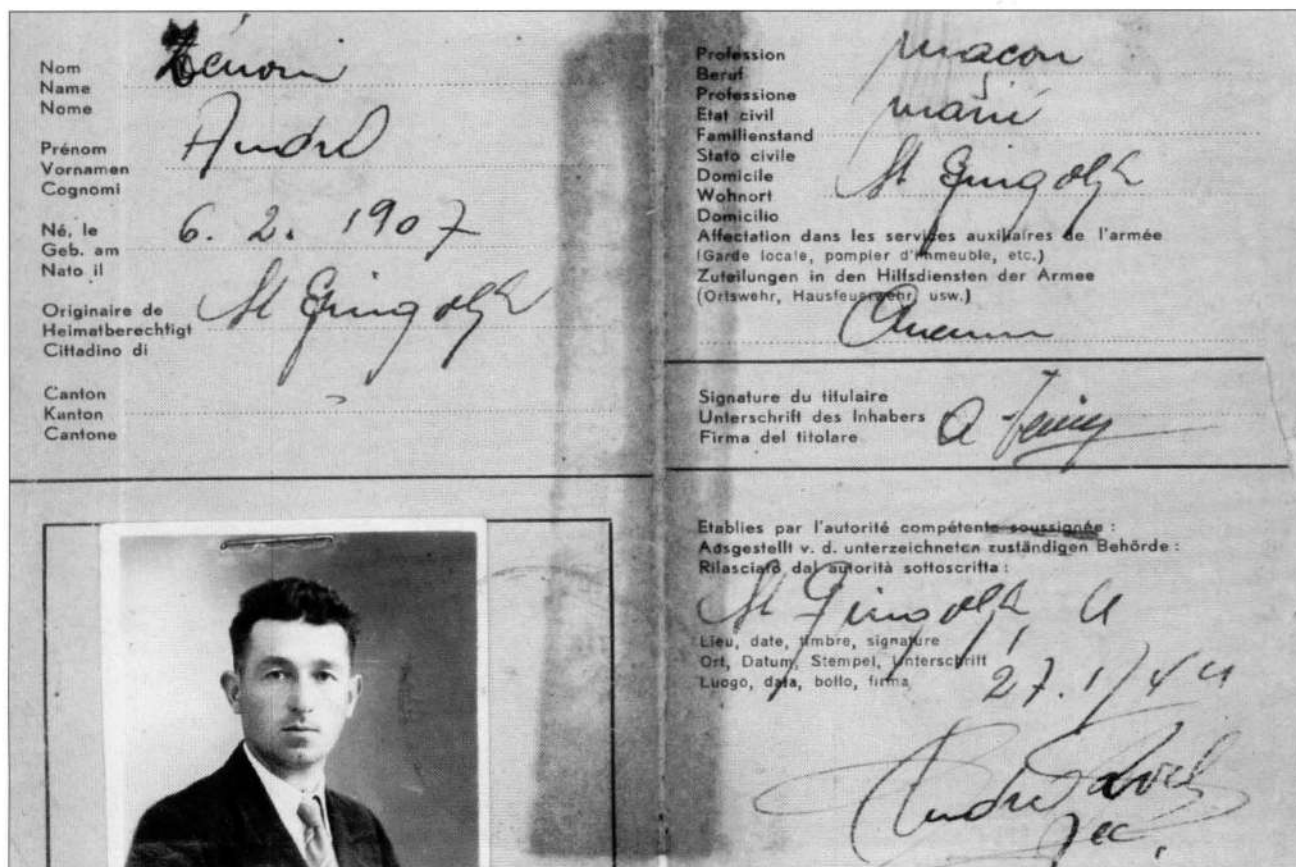 Nom
Name
Nome
Prénom
Vornamen
Cognomi
André
Né, le
Geb. am
Nato il
6. 2. 1907
Originaire de
Heimatberechtigt
Cittadino di
St Gingolph
Canton
Kanton
Cantone
Profession
Beruf
Professione
maçon
Etat civil
Familienstand
Stato civile
marié
Domicile
Wohnort
Domicilio
St Gingolph
Affectation dans les services auxiliaires de l'armée
(Garde locale, pompier d'immeuble, etc.)
Zuteilungen in den Hilfsdiensten der Armee
(Ortswehr, Hausfeuerwehr, usw.)
Aucun
Signature du titulaire
Unterschrift des Inhabers
Firma del titolare
Etablies par l'autorité compétente soussignée :
Ausgestellt v. d. unterzeichneten zuständigen Behörde :
Rilasciato dal autorità sottoscritta :
St Gingolph
Lieu, date, timbre, signature
Ort, Datum, Stempel, Unterschrift
Luogo, data, bollo, firma
27.1/44
André